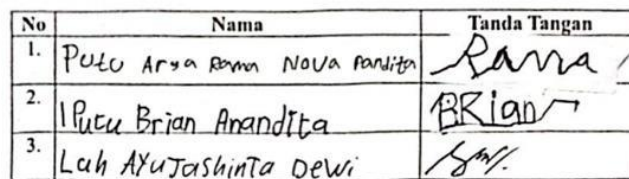 No Nama Tanda Tangan
1. Putu Arya Rama Nova Pandita Rama
2. I Putu Brian Anandita BRian
3. Luh AyuJashinTa Dewi